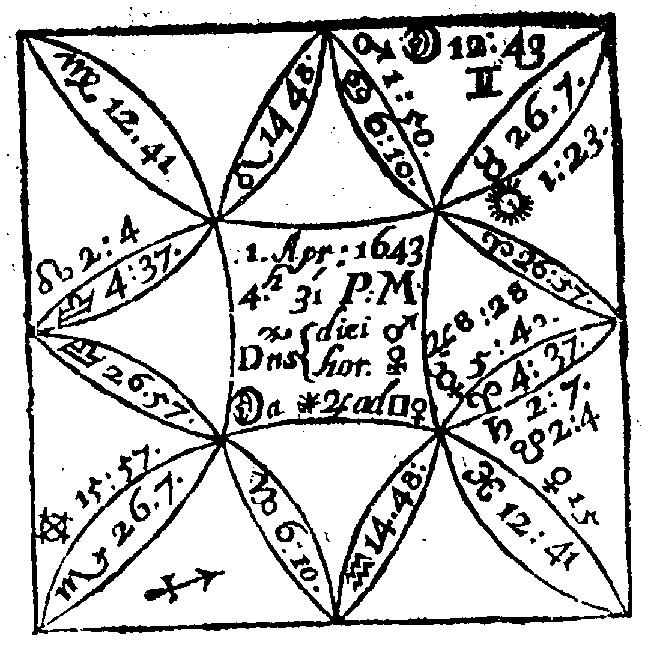 ♍ 12:41
♌ 14 48:
♂ ☽ 12:49
♊
1:50.
♋ 6:10.
♉ 26.7.
☉ 1:23.
☊ 2:4
♎ 4:37.
1. Apr: 1643
4.h 31 P.M.
Dns { diei ♂
hor. ♀
☽ a ✶ ♃ ad □ ♀
♈ 26:57.
♃ 8:28
☿ 5:4
♈ 4:37.
♄ 2:7.
☋ 2:4
♎ 26.57.
15:57.
♏ 26.7.
♐
♑ 6:10.
♒ 14.48:
♓ 12:41
♀ 15